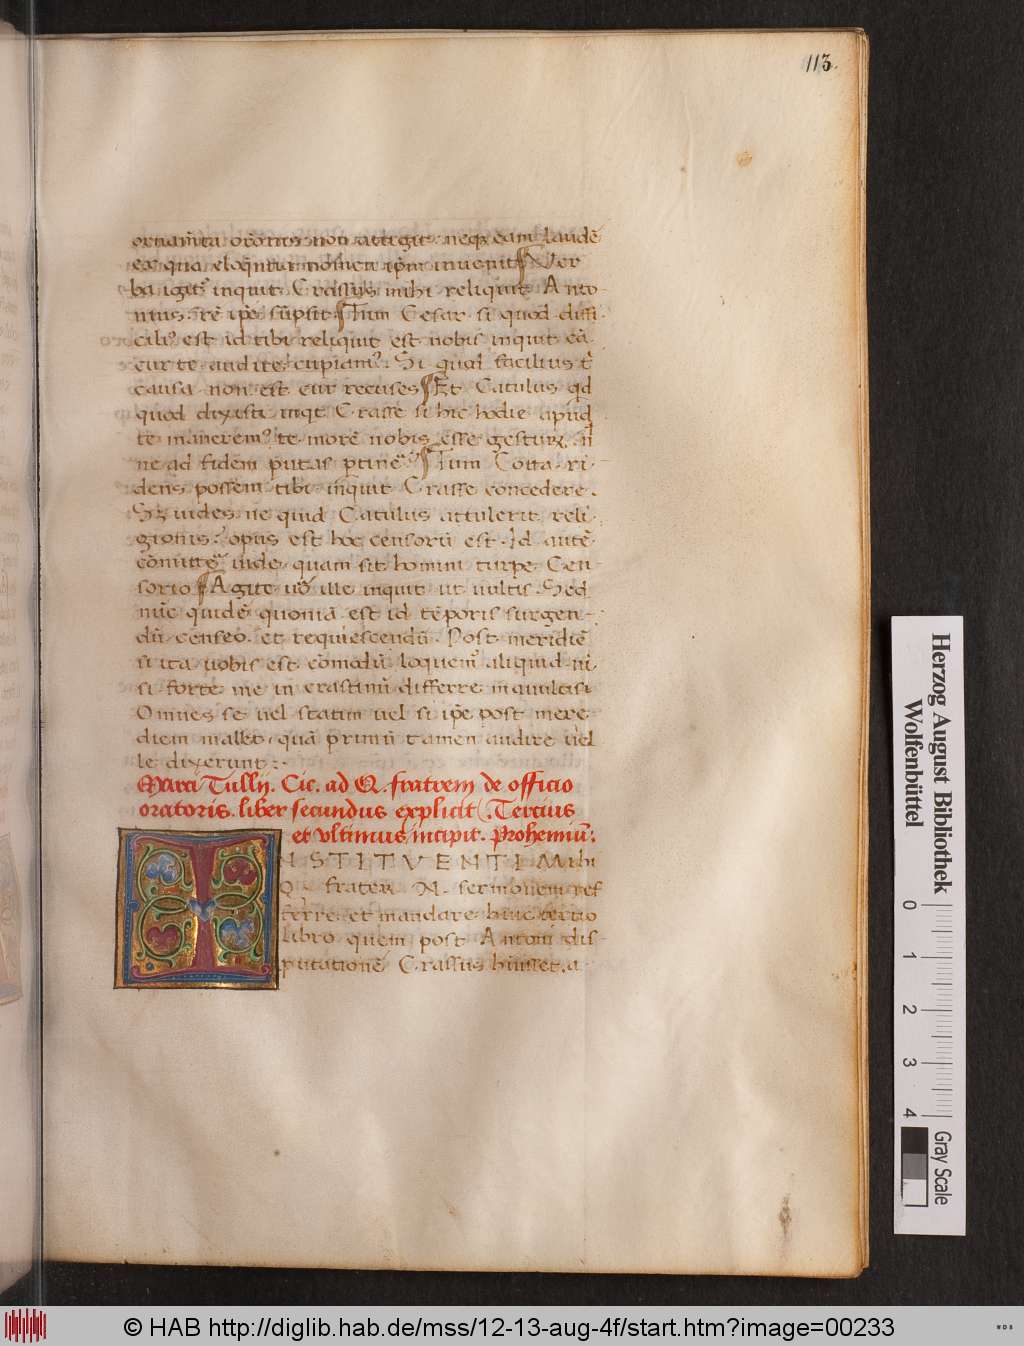 113.
ornam̄ta or̄onis non attigit. neqꝫ eam laudē
ex qua eloquentia nomen ip̄m inuenit Ver
ba igit᷑ inquit Crassus mihi reliquit Anto
nius. rē ip̄e sūpsit Tum Cesar si quod diffi
cili⁹ est id tibi reliquit est nobis inquit cā
cur te audire cupiam⁹. Si quod facilius t̄
causa non est cur recuses Et Catulus qd
quod dixisti inqt Crasse si hic hodie apud
te manerem⁹ te morē nobis esse gesturū. n̄
ne ad fidem putas ꝑtinē Tum Cotta ri
dens possem tibi inquit Crasse concedere.
Sꝫ uides ne quid Catulus attulerit reli
gionis. opus est hoc censorū est. Id autē
cōmittē uide quam sit homini turpe Cen
sorio Agite uō ille inquit ut uultis Sed
nūc quidē quoniā est id tēporis surgen-
dū censeo. et requiescendū. Post meridiē
si ita uobis est cōmodū loquem⁹ aliquid. ni
si forte me in crastinū differre muultis
Omnes se uel statim uel si ip̄e post meri
diem mallet. quā primū tamen audire uel
le dixerunt:-
Marci Tullij. Cic. ad Q. fratrem de officio
oratoris. liber secundus explicit. Tercius
et vltimus incipit. Prohemiū:.
INSTITVENTI Mihi
Q. frater M. sermonem ref
ferre. et mandare huic tertio
libro quem post Antoni dis-
putationē Crassus huisset. a
Herzog August Bibliothek
Wolfenbüttel
0 1 2 3 4
Gray Scale
© HAB http://diglib.hab.de/mss/12-13-aug-4f/start.htm?image=00233
WDB